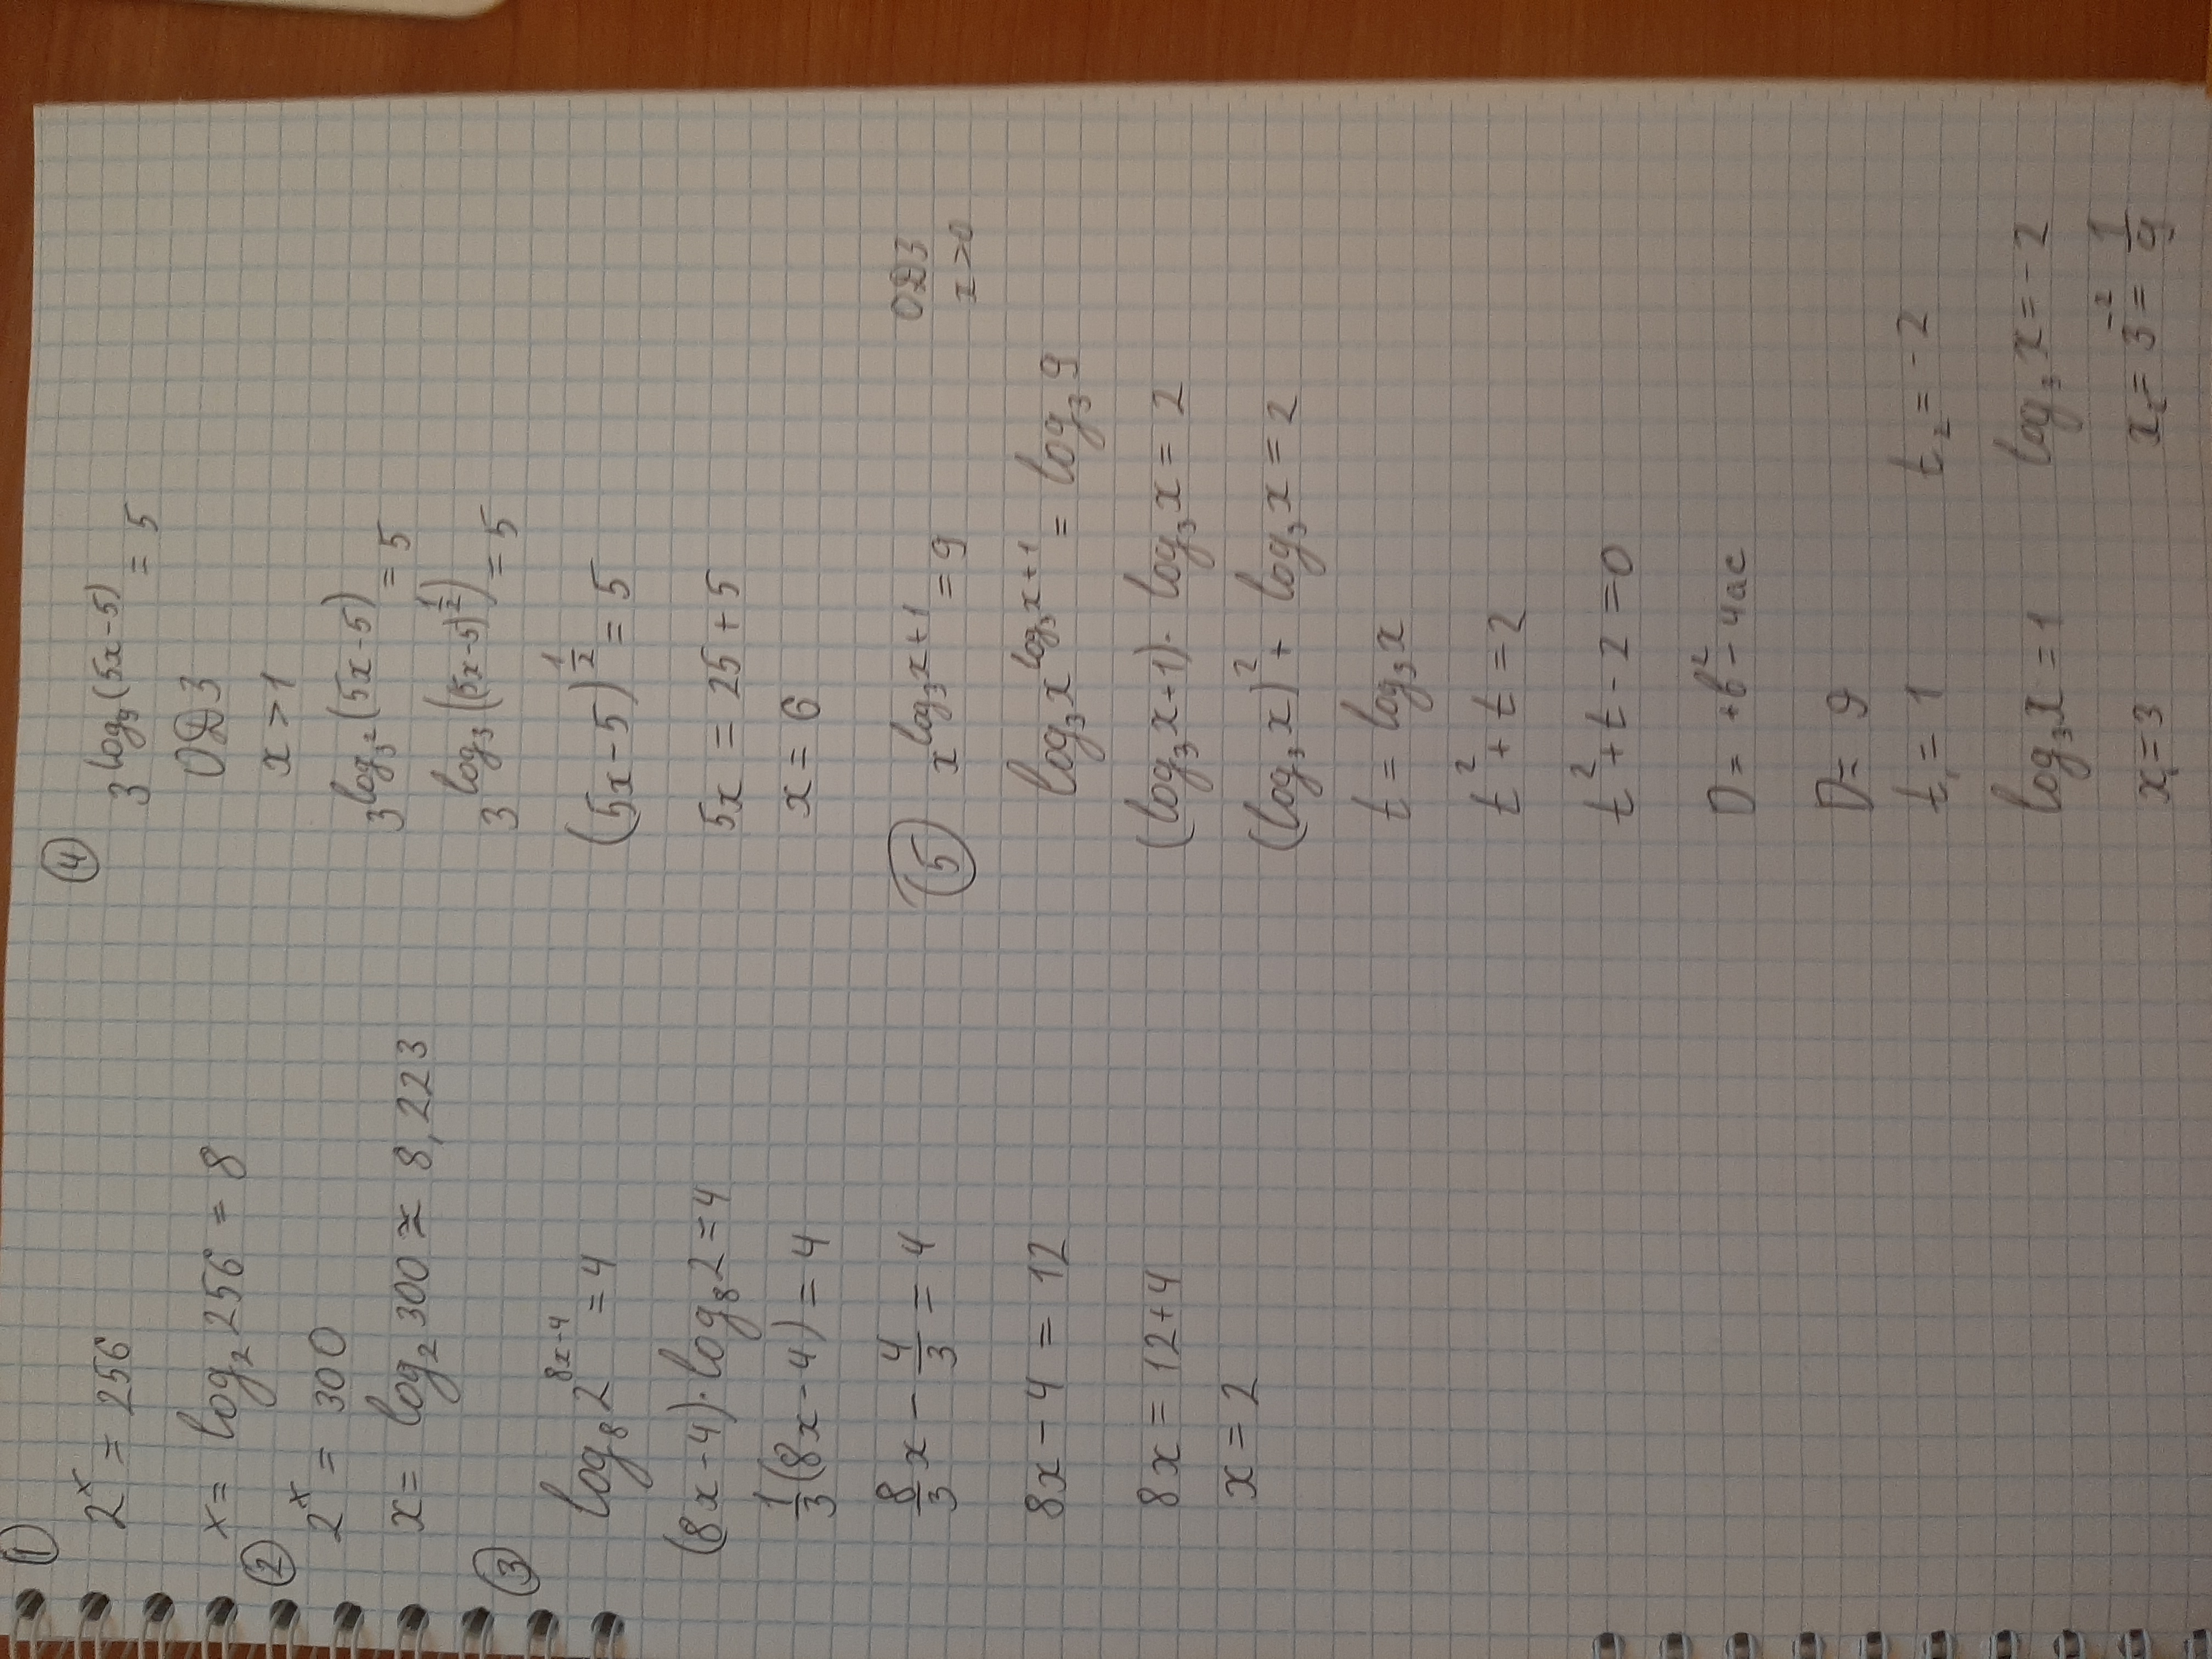 ①
2ˣ = 256
x = log₂ 256 = 8
②
2ˣ = 300
x = log₂ 300 ≃ 8,223
③
log₈ 2^(8x-4) = 4
(8x-4)·log₈ 2 = 4
1/3 (8x-4) = 4
8/3 x - 4/3 = 4
8x - 4 = 12
8x = 12+4
x = 2
④
3^(log₉(5x-5)) = 5
ОДЗ
x > 1
3^(log_(3²)(5x-5)) = 5
3^(log₃((5x-5)^(1/2))) = 5
(5x-5)^(1/2) = 5
5x = 25 + 5
x = 6
⑤ x^(log₃x+1) = 9 ОДЗ
x > 0
log₃ x^(log₃x+1) = log₃ 9
(log₃x+1)· log₃x = 2
(log₃x)² + log₃x = 2
t = log₃x
t² + t = 2
t² + t - 2 = 0
D = +b² - 4ac
D = 9
t₁ = 1 t₂ = -2
log₃x = 1 log₃x = -2
x₁ = 3 x₂ = 3⁻² = 1/9